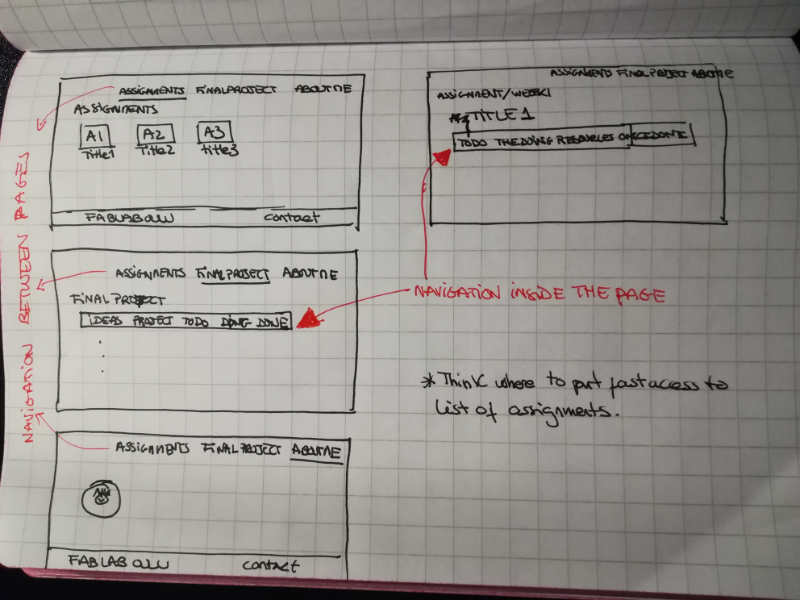 ASSIGNMENTS FINALPROJECT ABOUTME
ASSIGNMENTS
A1 A2 A3
Title1 Title2 Title3
FABLAB OUU contact
ASSIGNMENTS FINALPROJECT ABOUTME
FINAL PROJECT
IDEAS PROJECT TODO DOING DONE
ASSIGNMENTS FINALPROJECT ABOUTME
FABLAB OUU contact
NAVIGATION BETWEEN PAGES
ASSIGNMENTS FINALPROJECT ABOUTME
ASSIGNMENT/WEEK1
TITLE 1
TODO THEDOING RESOURCES ONCEDONE
NAVIGATION INSIDE THE PAGE
* Think where to put fast access to
list of assignments.